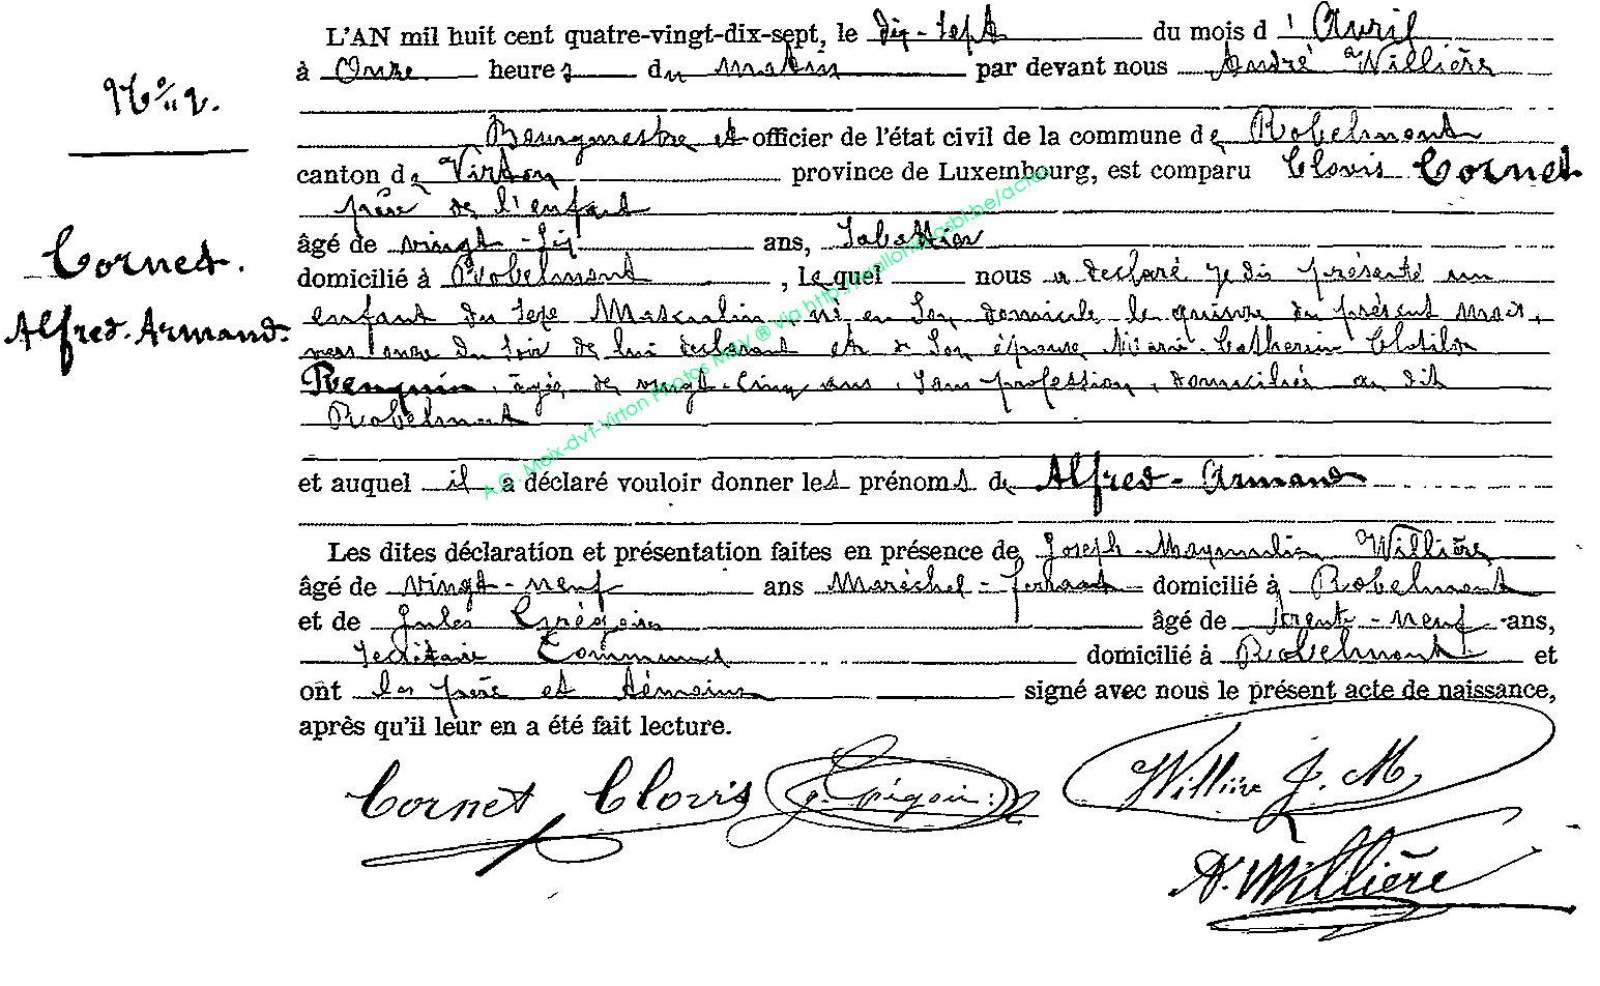 L'AN mil huit cent quatre-vingt-dix-sept, le dix-sept du mois d'Avril
à Onze heures du matin par devant nous André Willière
N° 2.
Bourgmestre et officier de l'état civil de la commune de Robelmont
canton de Virton province de Luxembourg, est comparu Clovis Cornet
père de l'enfant
âgé de vingt-six ans, Sabottier
Cornet.
domicilié à Robelmont, Lequel nous a declaré et présenté un
Alfred-Armand.
enfant du sexe Masculin, né en son domicile le quinze du présent mois,
vers onze du soir de lui déclarant et de son épouse Marie-Catherine Clotilde
Renquin, âgée de vingt-cinq ans, sans profession, domiciliés au dit
Robelmont
et auquel il a déclaré vouloir donner les prénoms de Alfred-Armand
Les dites déclaration et présentation faites en présence de Joseph-Maximilien Willière
âgé de vingt-neuf ans Maréchal-ferrant domicilié à Robelmont
et de Jules Grégoire âgé de trente-neuf ans,
Secrétaire Communal domicilié à Robelmont et
ont les père et témoins signé avec nous le présent acte de naissance,
après qu'il leur en a été fait lecture.
Cornet Clovis J. Grégoire Willière J. M
A. Willière
A.G. Moix-dvt-Virton Photos MSV ® via